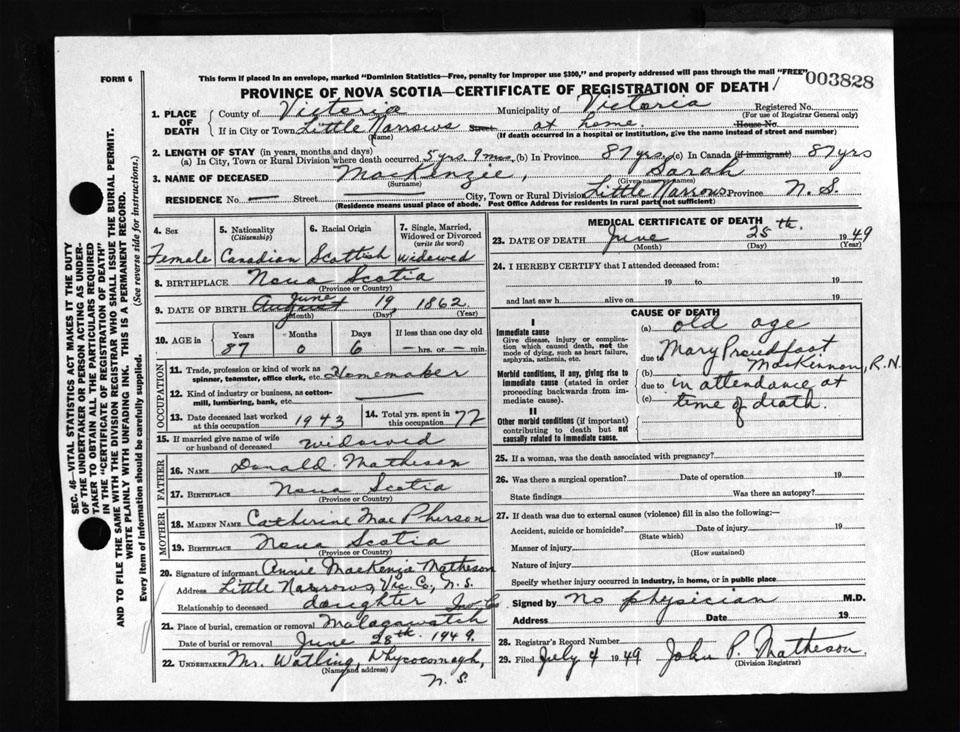 FORM 6
This form if placed in an envelope, marked "Dominion Statistics—Free, penalty for improper use $300," and properly addressed will pass through the mail "FREE"
003828
PROVINCE OF NOVA SCOTIA—CERTIFICATE OF REGISTRATION OF DEATH
1. PLACE OF DEATH
County of Victoria Municipality of Victoria Registered No.
(For use of Registrar General only)
If in City or Town Little Narrows Street at home House No.
(Name) (If death occurred in a hospital or institution, give the name instead of street and number)
2. LENGTH OF STAY (in years, months and days)
(a) In City, Town or Rural Division where death occurred 5 yrs. 9 mos. (b) In Province 87 yrs. (c) In Canada (if immigrant) 87 yrs
3. NAME OF DECEASED MacKenzie, Sarah
(Surname) (Given name or names)
RESIDENCE No. — Street — City, Town or Rural Division Little Narrows Province N. S.
(Residence means usual place of abode. Post Office Address for residents in rural parts not sufficient)
4. Sex
Female
5. Nationality
(Citizenship)
Canadian
6. Racial Origin
Scottish
7. Single, Married, Widowed or Divorced
(write the word)
widowed
8. BIRTHPLACE Nova Scotia
(Province or Country)
9. DATE OF BIRTH August June 19, 1862
(Month) (Day) (Year)
10. AGE in
Years Months Days If less than one day old
87 0 6 — hrs. or — min.
OCCUPATION
11. Trade, profession or kind of work as spinner, teamster, office clerk, etc. Homemaker
12. Kind of industry or business, as cotton-mill, lumbering, bank, etc. —
13. Date deceased last worked at this occupation 1943
14. Total yrs. spent in this occupation 72
15. If married give name of wife or husband of deceased widowed
FATHER
16. NAME Donald Matheson
17. BIRTHPLACE Nova Scotia
(Province or Country)
MOTHER
18. MAIDEN NAME Catherine MacPherson
19. BIRTHPLACE Nova Scotia
(Province or Country)
20. Signature of informant Annie MacKenzie Matheson
Address Little Narrows, Vic. Co., N. S.
Relationship to deceased daughter
21. Place of burial, cremation or removal Malagawatch Inv. Co
Date of burial or removal June 28th. 1949.
22. UNDERTAKER Mr. Watling, Whycocomagh, N. S.
(Name and address)
MEDICAL CERTIFICATE OF DEATH
23. DATE OF DEATH June 25th. 1949
(Month) (Day) (Year)
24. I HEREBY CERTIFY that I attended deceased from:
19 to 19
and last saw h alive on 19
CAUSE OF DEATH
I
Immediate cause
Give disease, injury or complication which caused death, not the mode of dying, such as heart failure, asphyxia, asthenia, etc.
Morbid conditions, if any, giving rise to immediate cause (stated in order proceeding backwards from immediate cause).
II
Other morbid conditions (if important) contributing to death but not causally related to immediate cause.
(a) old age
due to Mary Proudfoot
(b) MacKinnon, R.N.
due to in attendance at
(c) time of death.
25. If a woman, was the death associated with pregnancy?
26. Was there a surgical operation? Date of operation 19
State findings Was there an autopsy?
27. If death was due to external causes (violence) fill in also the following:—
Accident, suicide or homicide? Date of injury 19
(State which)
Manner of injury
(How sustained)
Nature of injury
Specify whether injury occurred in industry, in home, or in public place
Signed by No physician M.D.
Address Date 19
28. Registrar's Record Number
29. Filed July 4 1949 John P. Matheson.
(Division Registrar)
SEC. 46—VITAL STATISTICS ACT MAKES IT THE DUTY
OF THE UNDERTAKER OR PERSON ACTING AS UNDER-
TAKER TO OBTAIN ALL THE PARTICULARS REQUIRED
IN THE "CERTIFICATE OF REGISTRATION OF DEATH"
AND TO FILE THE SAME WITH THE DIVISION REGISTRAR WHO SHALL ISSUE THE BURIAL PERMIT.
WRITE PLAINLY WITH UNFADING INK. THIS IS A PERMANENT RECORD.
Every item of Information should be carefully supplied. (See reverse side for instructions.)